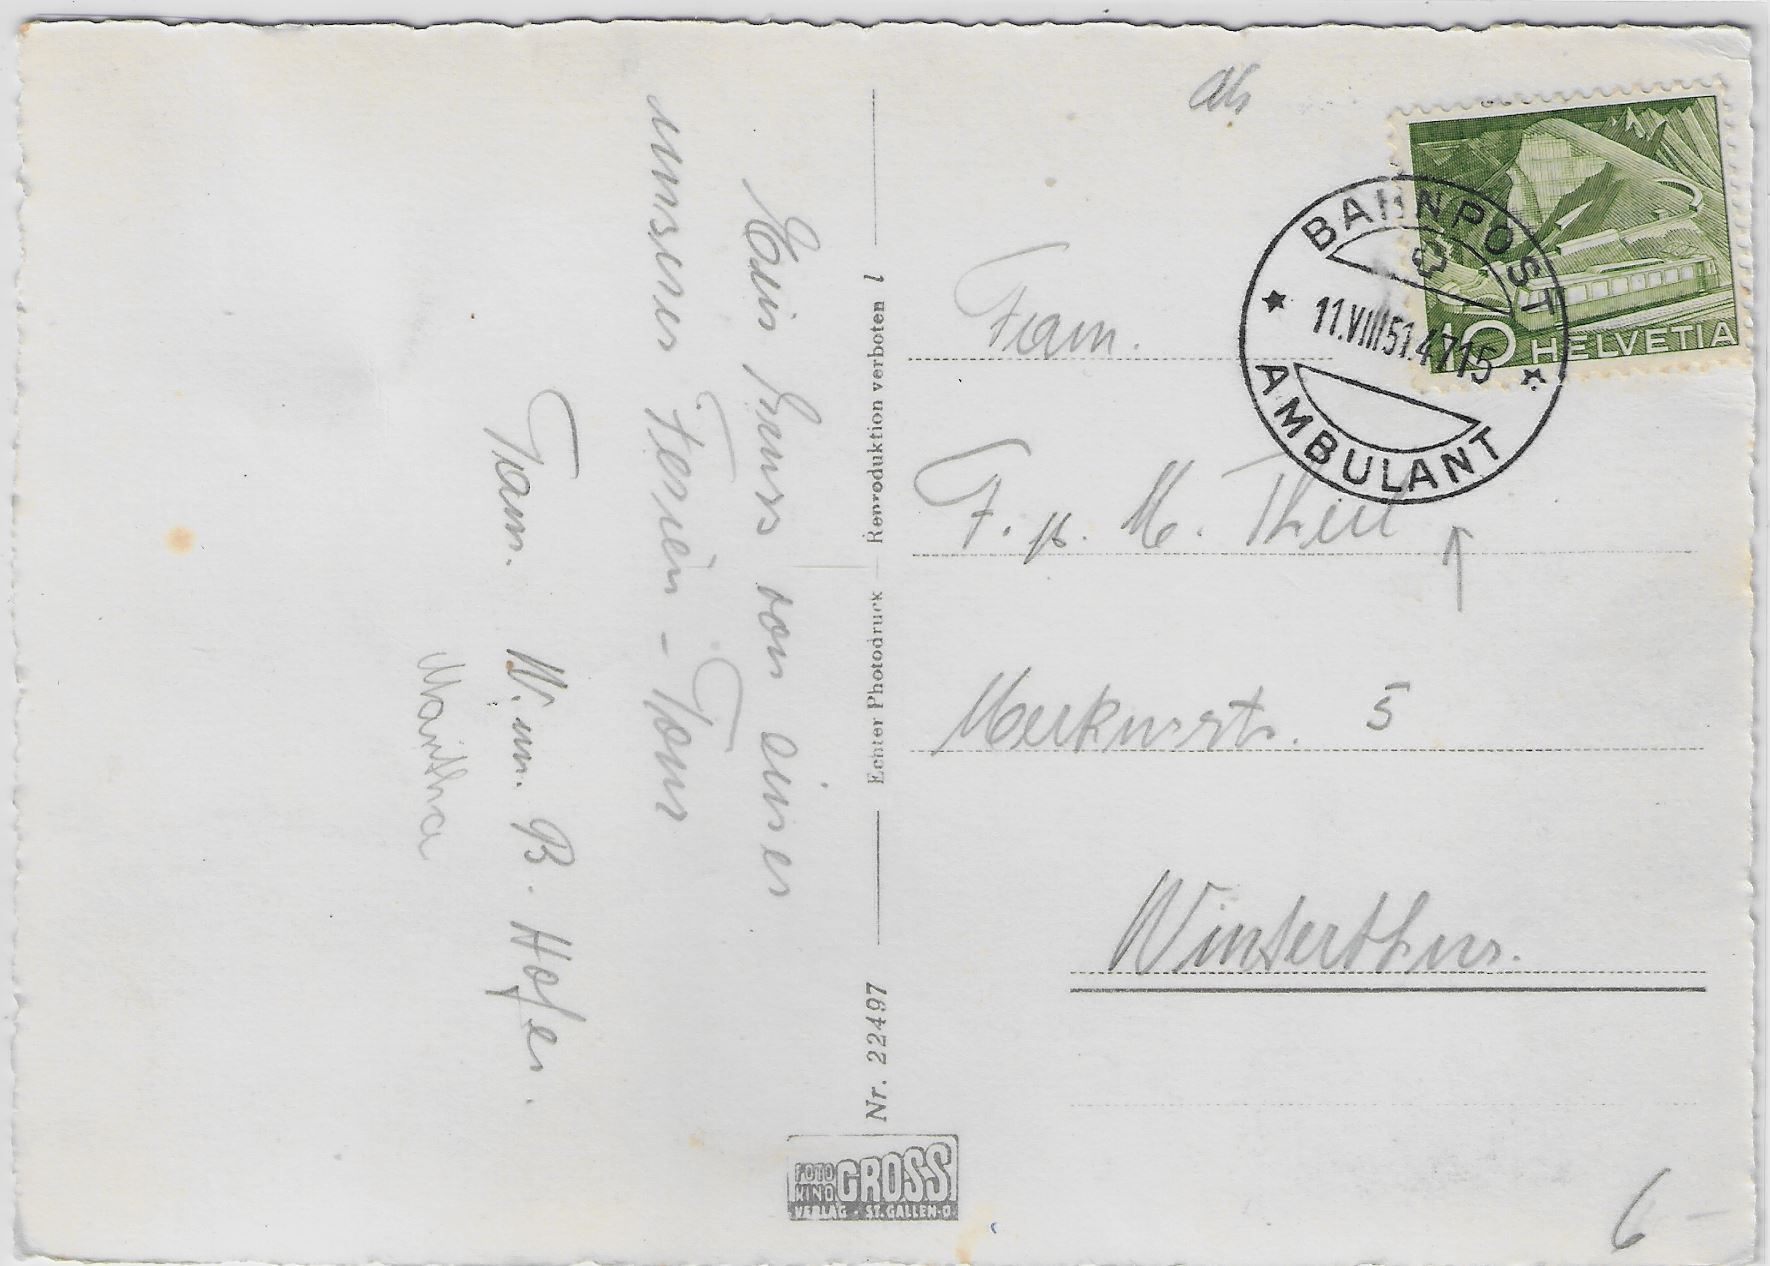 Ein Gruss von einer
unserer Ferien-Tour
Fam. W. um. B. Hofer.
Martha
Nr. 22497 Echter Photodruck Reproduktion verboten l
FOTO KINO GROSS
VERLAG - ST. GALLEN-O
HELVETIA 10
BAHNPOST
11.VIII 51. 4715
AMBULANT
Fam.
F. p. M. Theil
Merkurstr. 5
Winterthur.
6 -